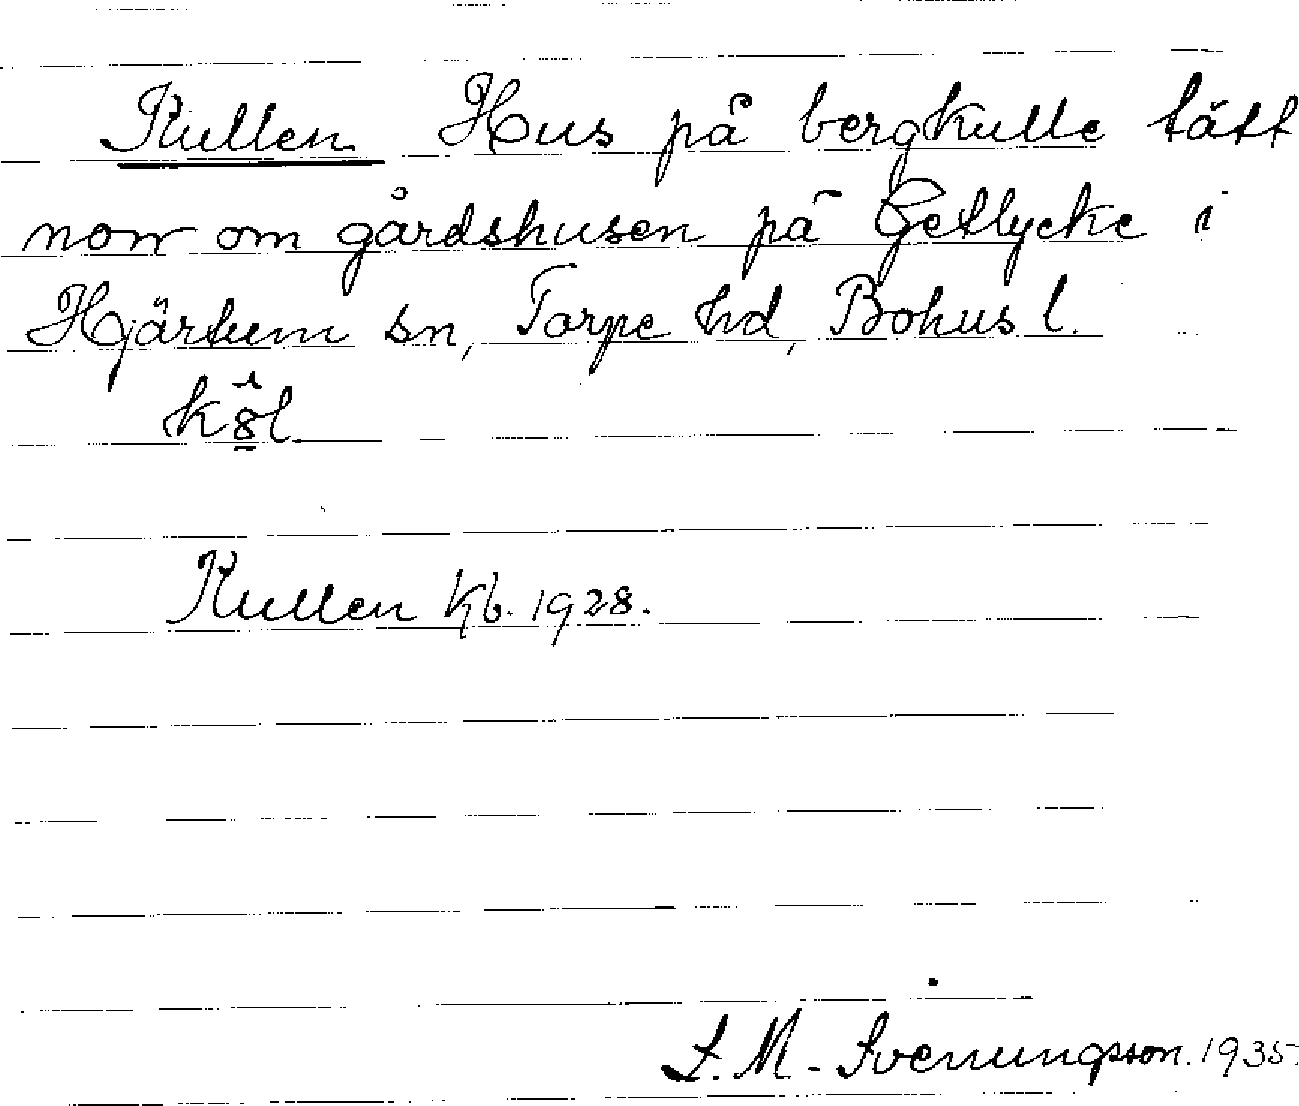 Kullen Hus på bergkulle tätt
norr om gårdshusen på Getlycke i
Hjärtum sn, Torpe hd, Bohus l.
Kullen Kb. 1928.
J. M. Svenungsson. 1935.